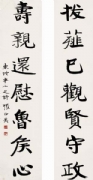 拔薤已觀賢守政
壽親還慰魯侯心